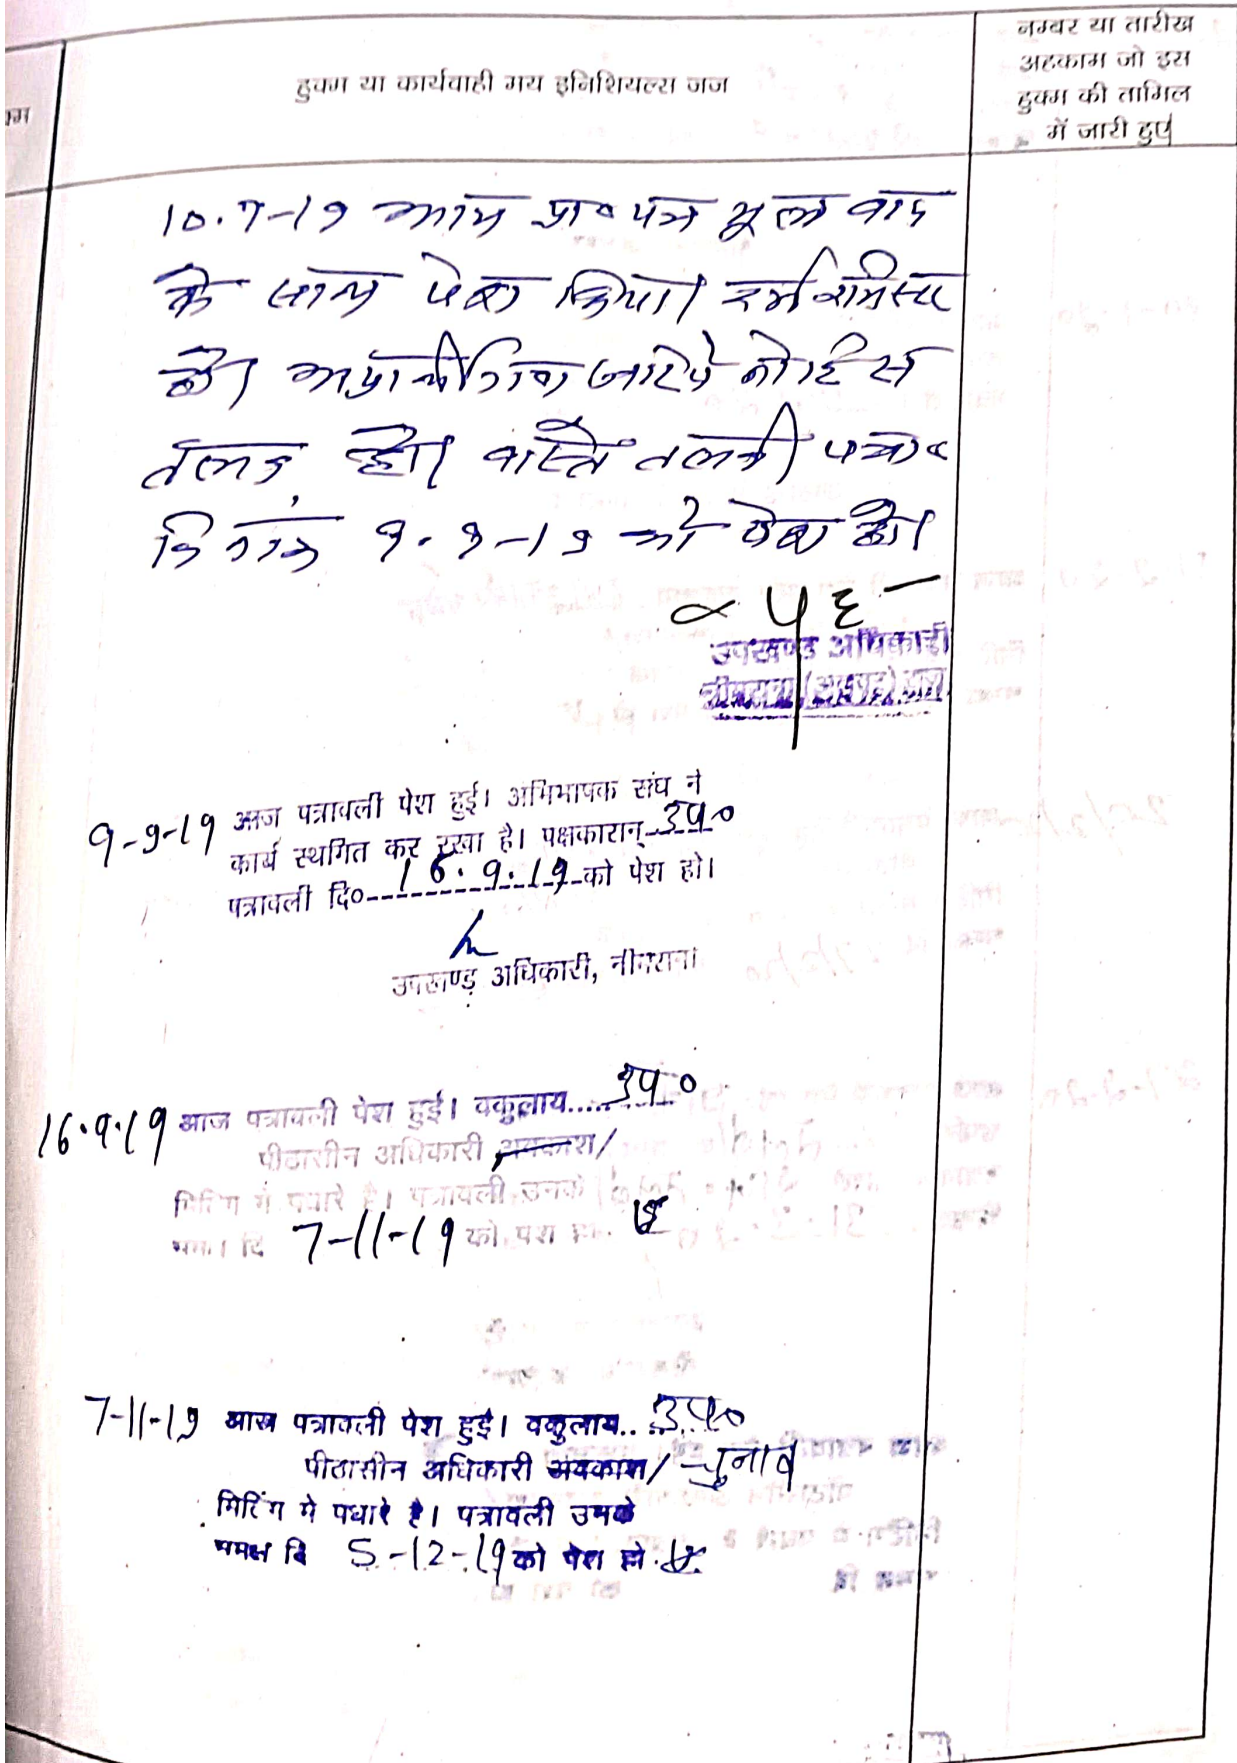 हुक्म या कार्यवाही मय इनिशियल्स जज
नम्बर या तारीख
अहकाम जो इस
हुक्म की तामिल
में जारी हुए
10.7-19 आज प्रा० पत्र मूल वाद
के साथ पेश किया। दर्ज रजिस्टर
हो। अप्रार्थीगण जरिये नोटिस
तलब हो। वास्ते तलबी पत्रा०
दिनांक 9.9-19 को पेश हो।
उपखण्ड अधिकारी
नीमराना (अलवर) राज.
9-9-19 आज पत्रावली पेश हुई। अभिभाषक संघ ने
कार्य स्थगित कर रखा है। पक्षकारान् उप०
पत्रावली दि० 16.9.19 को पेश हो।
उपखण्ड अधिकारी, नीमराना
16.9.19 आज पत्रावली पेश हुई। वकुलाय..... उप०
पीठासीन अधिकारी अवकाश/
मिटिंग में पधारे है। पत्रावली उनके
समक्ष दि 7-11-19 को पेश हो.
7-11-19 आज पत्रावली पेश हुई। वकुलाय..... उप०
पीठासीन अधिकारी अवकाश/ चुनाव
मिटिंग मे पधारे है। पत्रावली उनके
समक्ष दि 5-12-19 को पेश हो.